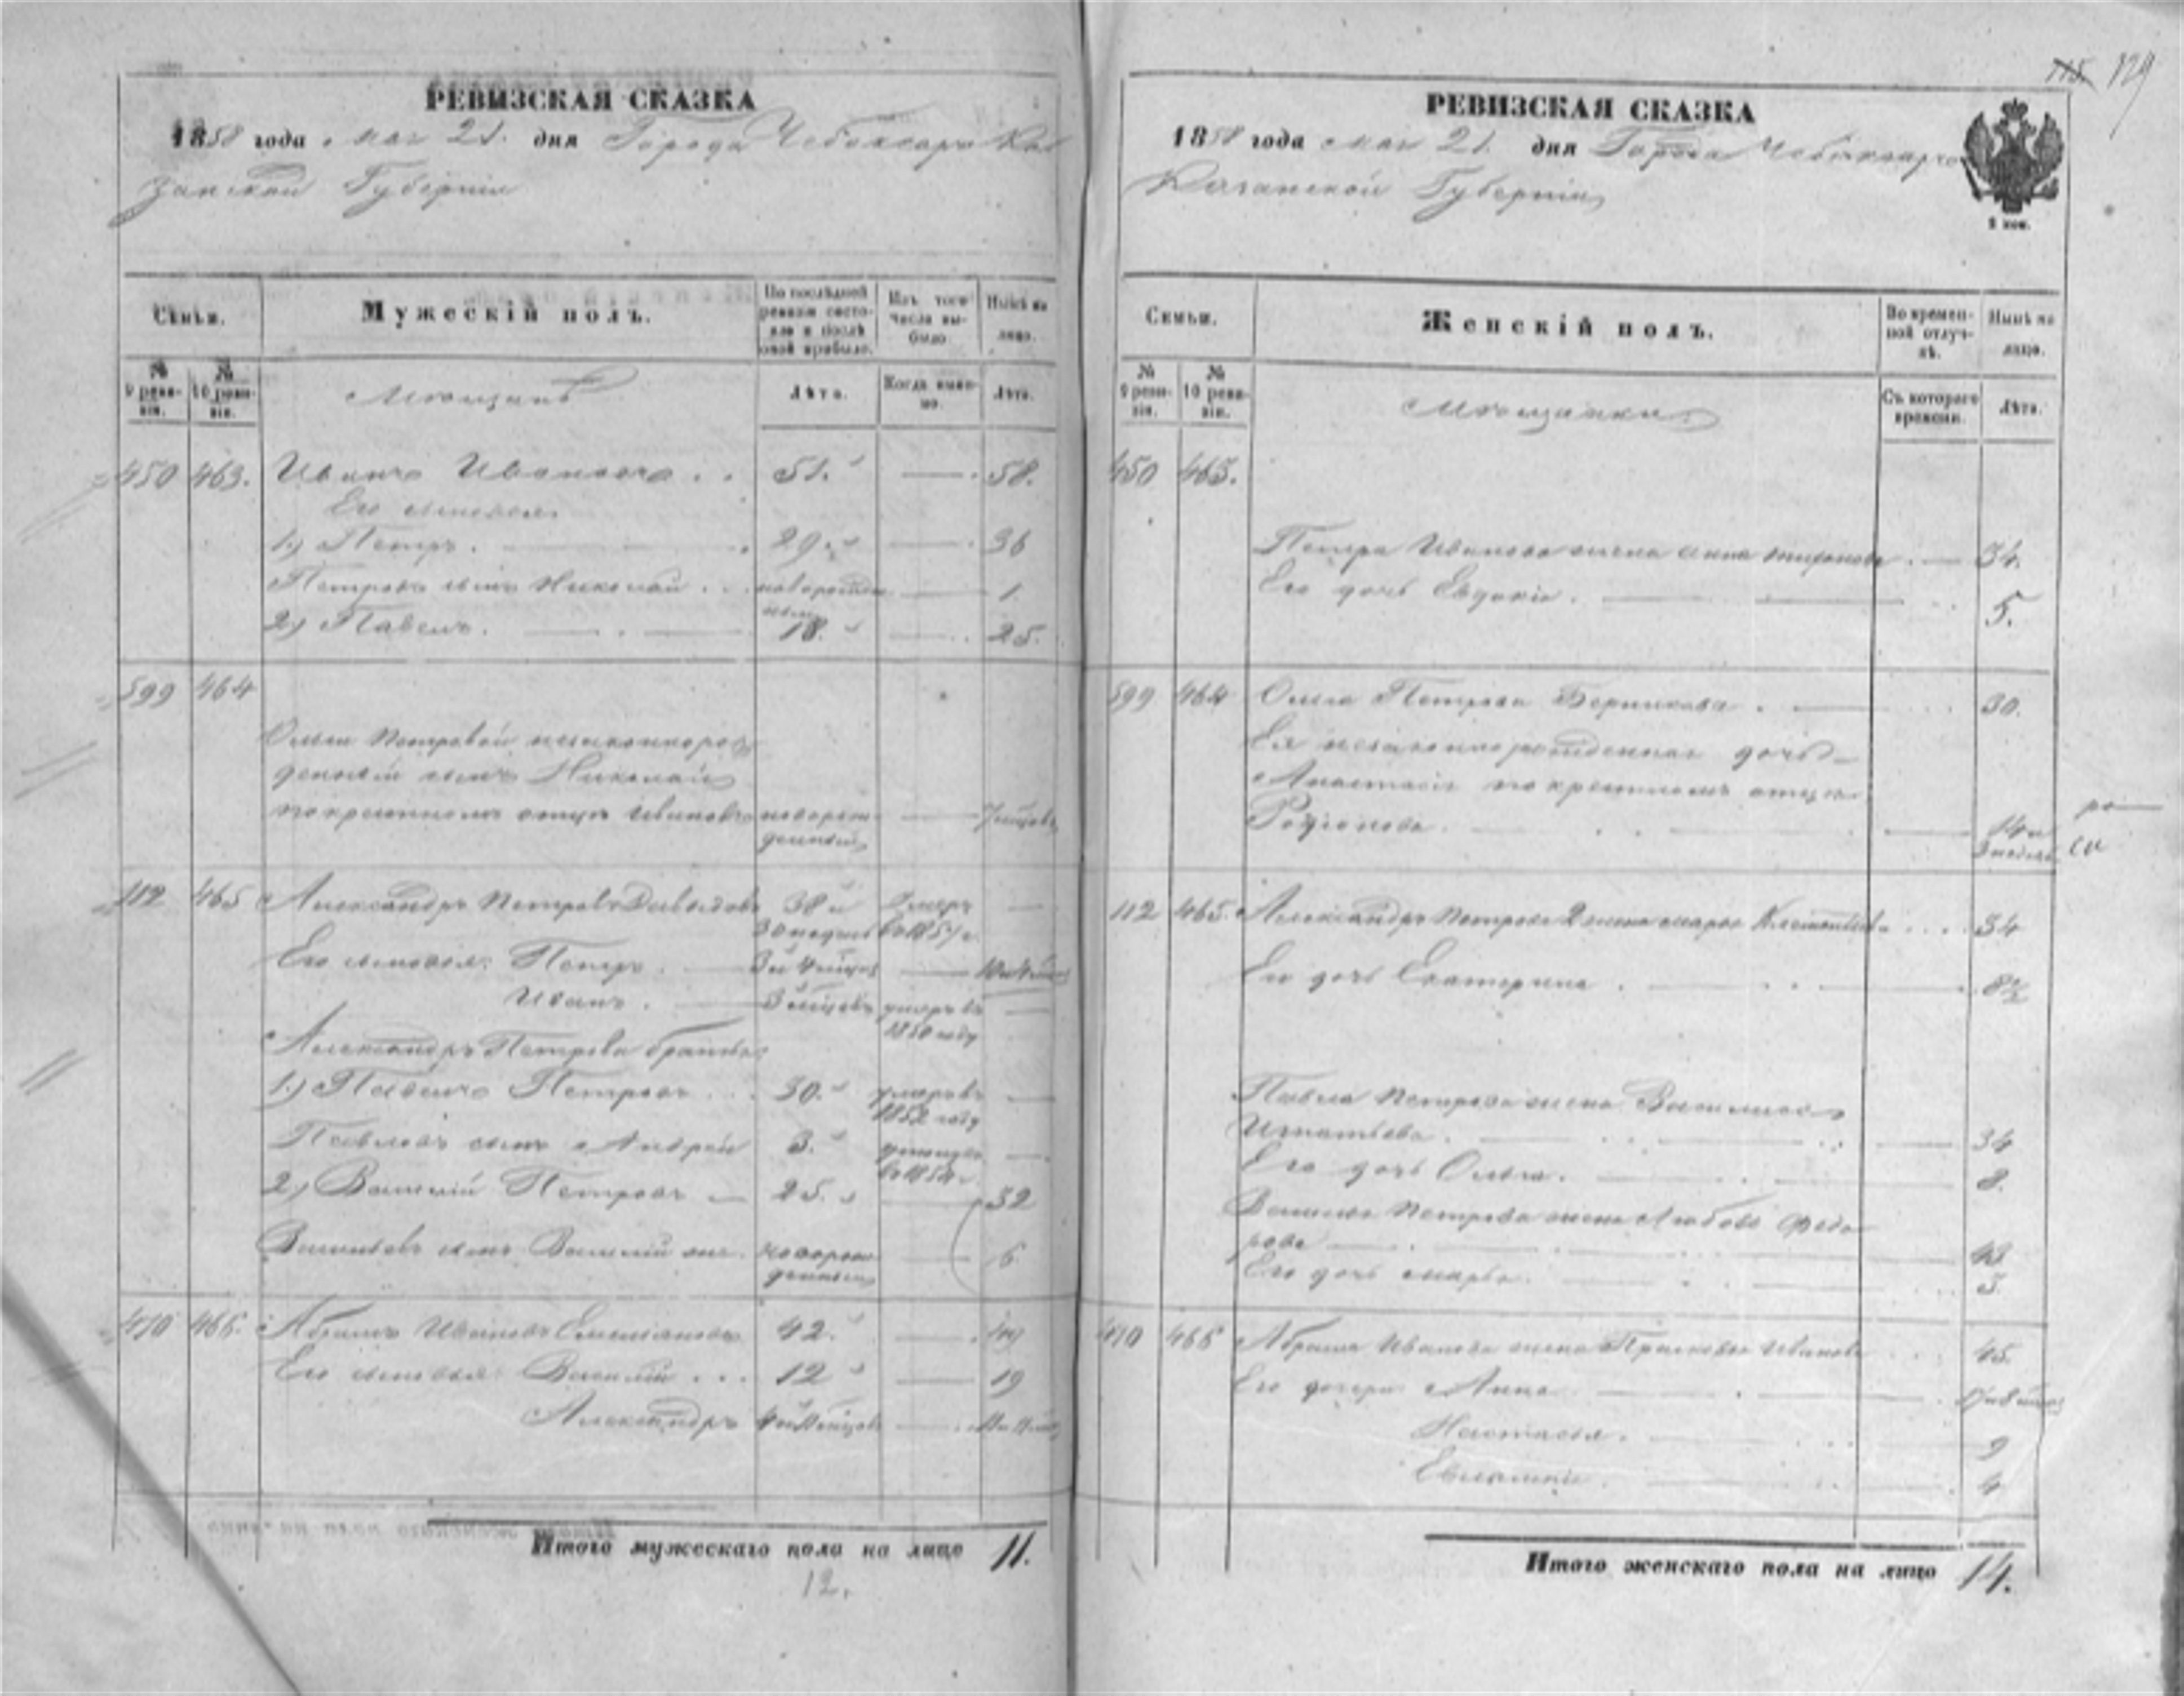 115 129
РЕВИЗСКАЯ СКАЗКА
1858 года мая 21. дня Города Чебоксаръ Ка
занской Губерніи
Семьи.
Мужескій полъ.
По послѣдней ревизіи состояло и послѣ оной прибыло.
Изъ того числа выбыло
Нынѣ на лицо.
№ 9 ревизіи.
№ 10 ревизіи.
Мѣщанъ
Лѣта.
Когда именно.
Лѣта.
450 463. Иванъ Ивановъ . . 51. — 58.
Его сыновья
1.) Петръ . — 29. — 36
Петровъ сынъ Николай . . новорожденный — 1.
2.) Павелъ. — 18. — 25.
599 464
Ольги Петровой незаконнорож
денный сынъ Николай
по крестному отцу Ивановъ новорожденный — 7 мѣсцовъ
112 465 Александръ Петровъ Давыдовъ 38 и 30 недѣль Умеръ —
Его сыновья: Петръ . — 3 и 4 мѣсцов —
Иванъ . — 3 мѣсцовъ умеръ въ 1850 году —
Александръ Петрова братья:
1.) Павелъ Петровъ . . 30. умеръ въ 1852 году —
Павловъ сынъ Андрей 3. —
2.) Василій Петровъ — 25. — 32
Васильевъ сынъ Василій же. новорожденный — 6
470 466. Абрамъ Ивановъ Емельяновъ 42. — 49
Его сыновья: Василій . . . 12 — 19
Александръ —
Итого мужескаго пола на лицо 11.
12.
РЕВИЗСКАЯ СКАЗКА
1858 года мая 21. дня Города Чебоксаръ
Казанской Губерніи
2 коп.
Семьи.
Женскій полъ.
Во временной отлучкѣ.
Нынѣ на лицо.
№ 9 ревизіи.
№ 10 ревизіи.
Мѣщанки
Съ котораго времени.
Лѣта.
450 463.
Петра Иванова жена Анна . — 34.
Его дочь Евдокія . — 5.
599 464 Ольга Петрова . — 30.
Ея незаконнорожденная дочь
Анастасія по крестному отцу
Родіонова. — 14 и 3 недѣль
112 465. Александръ Петрова 2 жена Марья . . . . 34
Его дочь Екатерина . — 8½
Павла Петрова жена Василиса
Игнатьева. — 34
Его дочь Ольга. — 8.
Василья Петрова жена Любовь Федо
рова — 43
Его дочь Марья. — 5.
470 466 Абрама Иванова жена Прасковья Иванова . . 45.
Его дочери Анна —
Настасья. — 9
— 4
Итого женскаго пола на лицо 14.